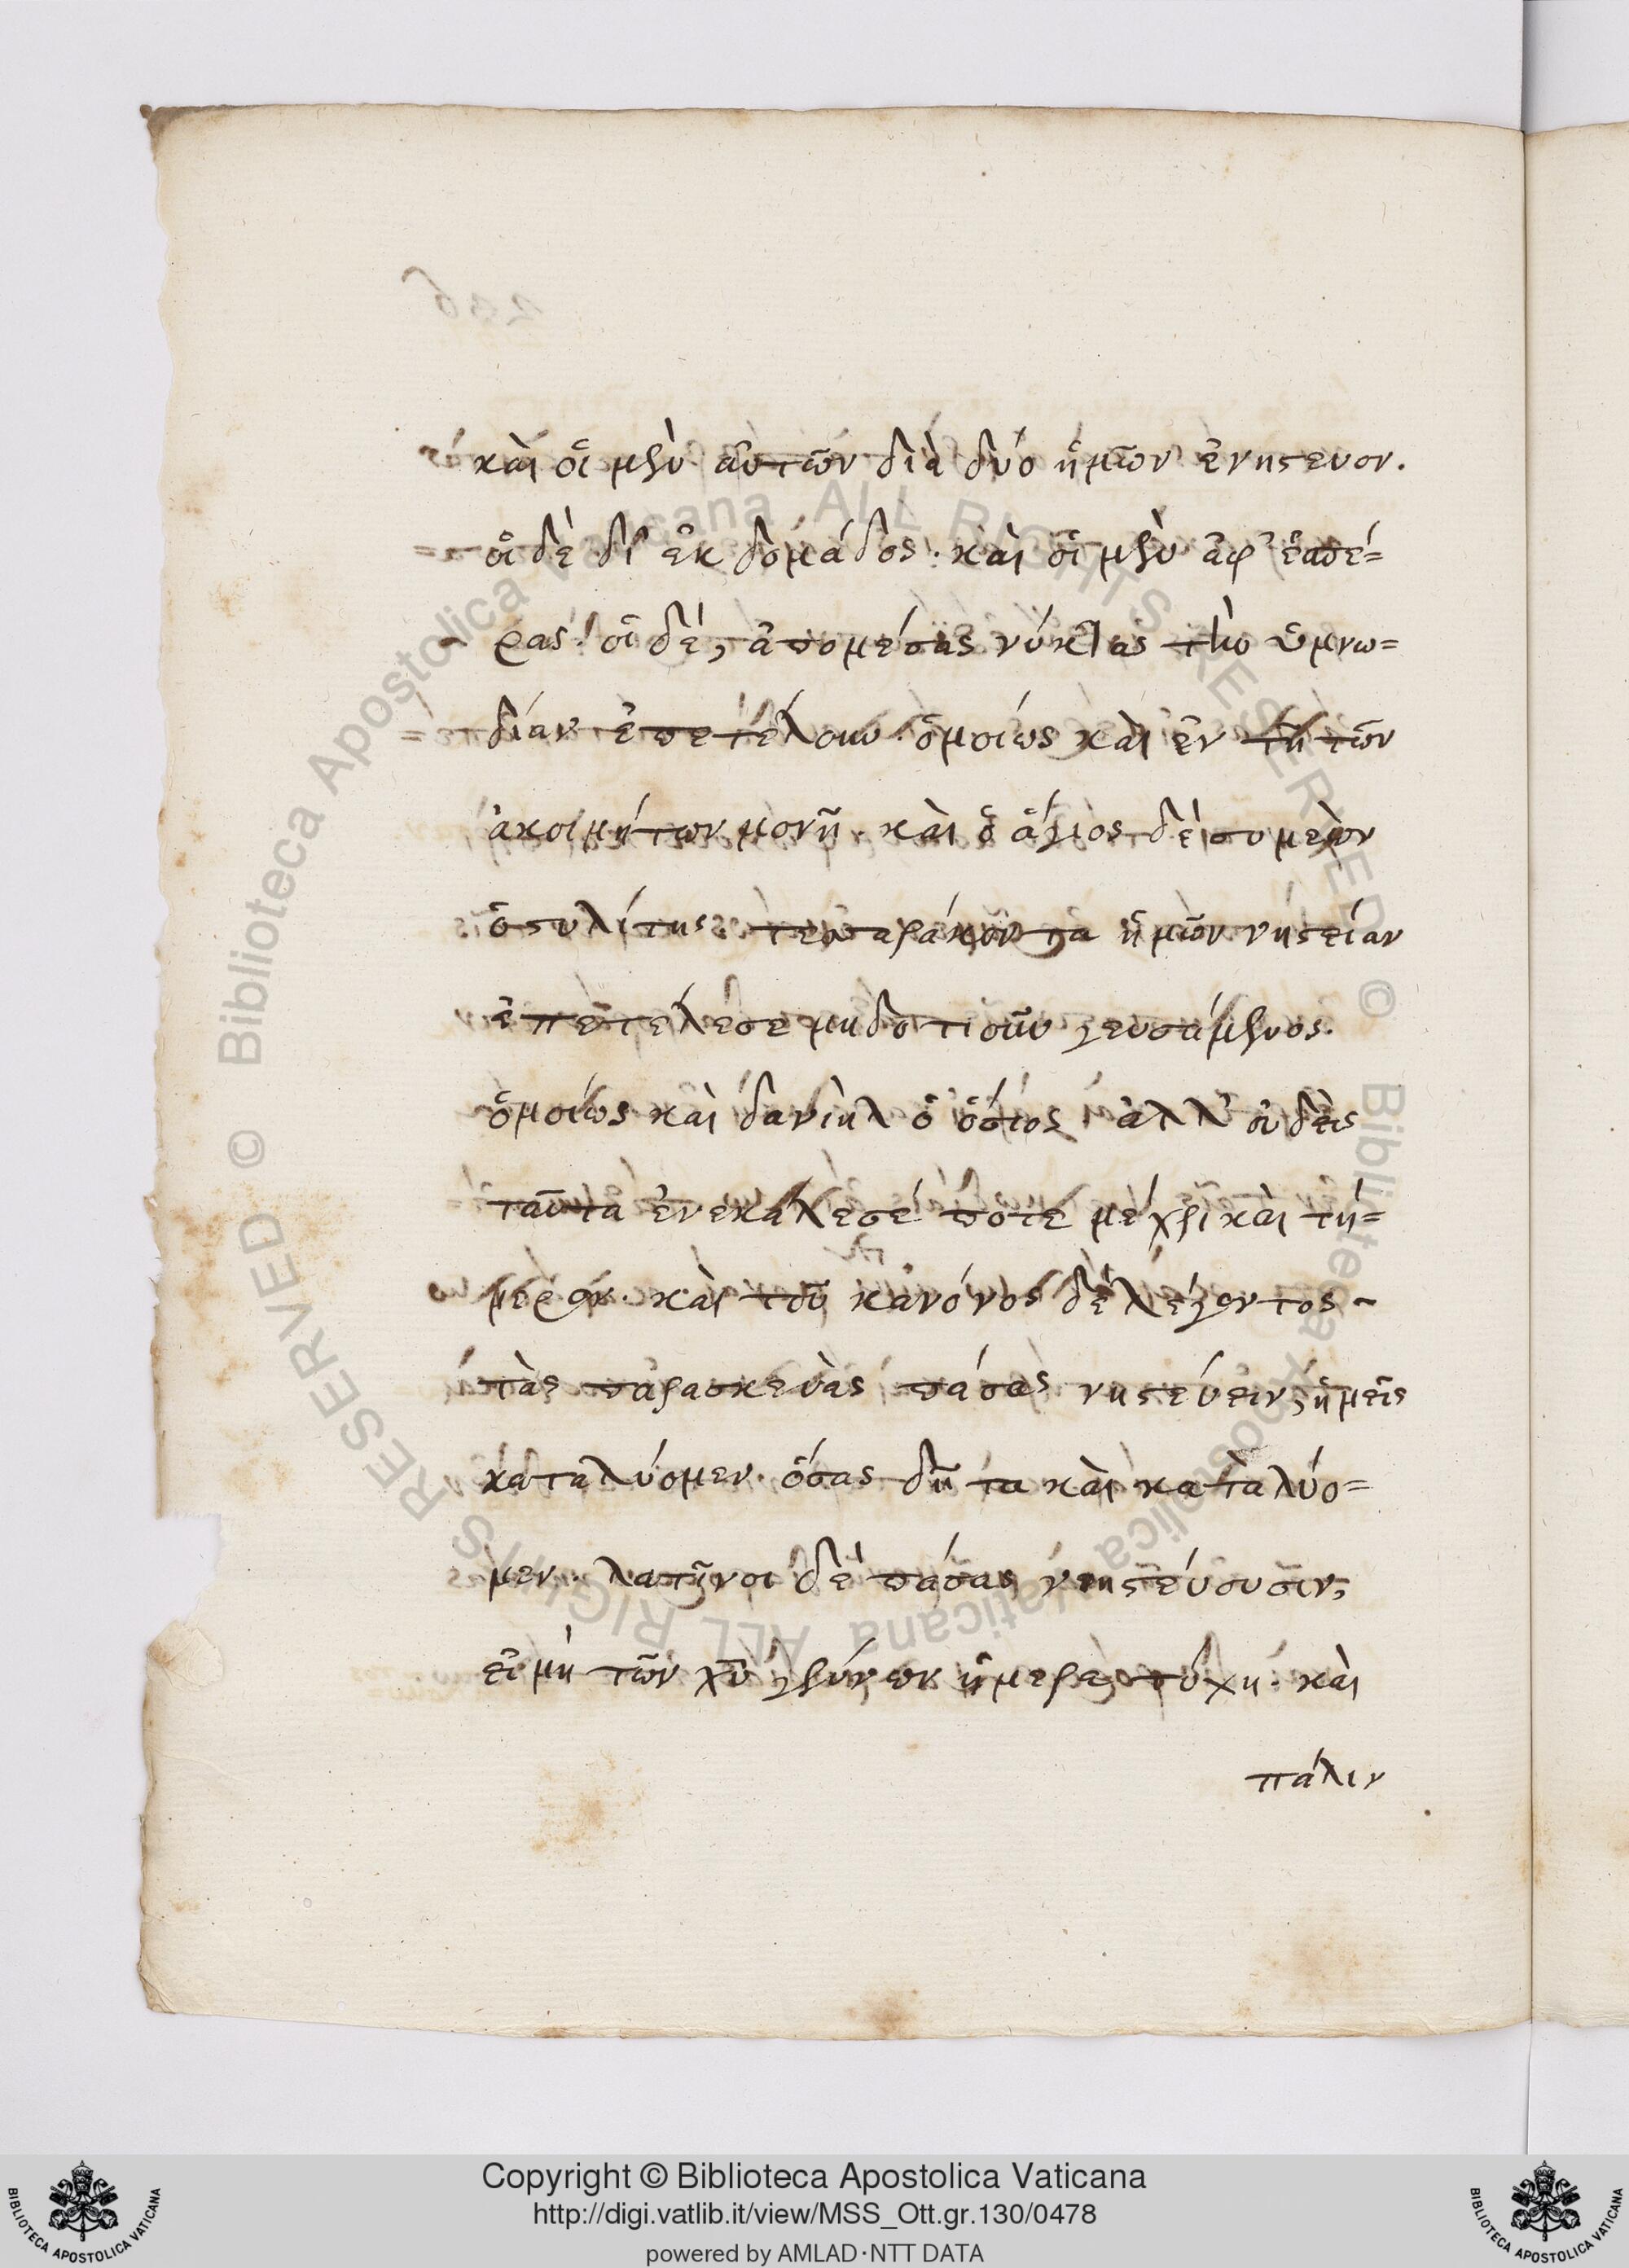 καὶ οἱ μὲν αὐτῶν διὰ δύο ἡμῶν ἐνήστευον.
οἱ δὲ δι' ἑκδομάδος. καὶ οἱ μὲν ἀφ' ἑσπέ=
ρας. οἱ δὲ, ἀπομέσας νύκτας τὴν ὑμνω=
δίαν ἐπετέλουν. ὁμοίως καὶ ἐν τῇ τῶν
ἀκοιμήτων μονῇ. καὶ ὁ ἅγιος δὲ συμεὼν
ὁ στυλίτης τεσσαράκοντα ἡμῶν νηστείαν
ἐπετέλεσε μηδοτιοῦν γευσάμενος.
ὁμοίως καὶ δανιὴλ ὁ ὅσιος ἀλλ' οὐδεὶς
ταῦτα ἐνεκάλεσέ ποτε μέχρι καὶ τή=
μερον. καὶ τοῦ κανόνος δὲ λέγοντος ~
τὰς παρασκευὰς πάσας νηστεύειν, ἡμεῖς
καταλύομεν. ὅσας δῆτα καὶ καταλύο=
μεν. λατῖνοι δὲ πάσας νηστεύουσιν,
εἰ μὴ τῶν χῦ γεννων ἡμερα τύχη. καὶ
πάλιν
Copyright © Biblioteca Apostolica Vaticana
http://digi.vatlib.it/view/MSS_Ott.gr.130/0478
powered by AMLAD·NTT DATA